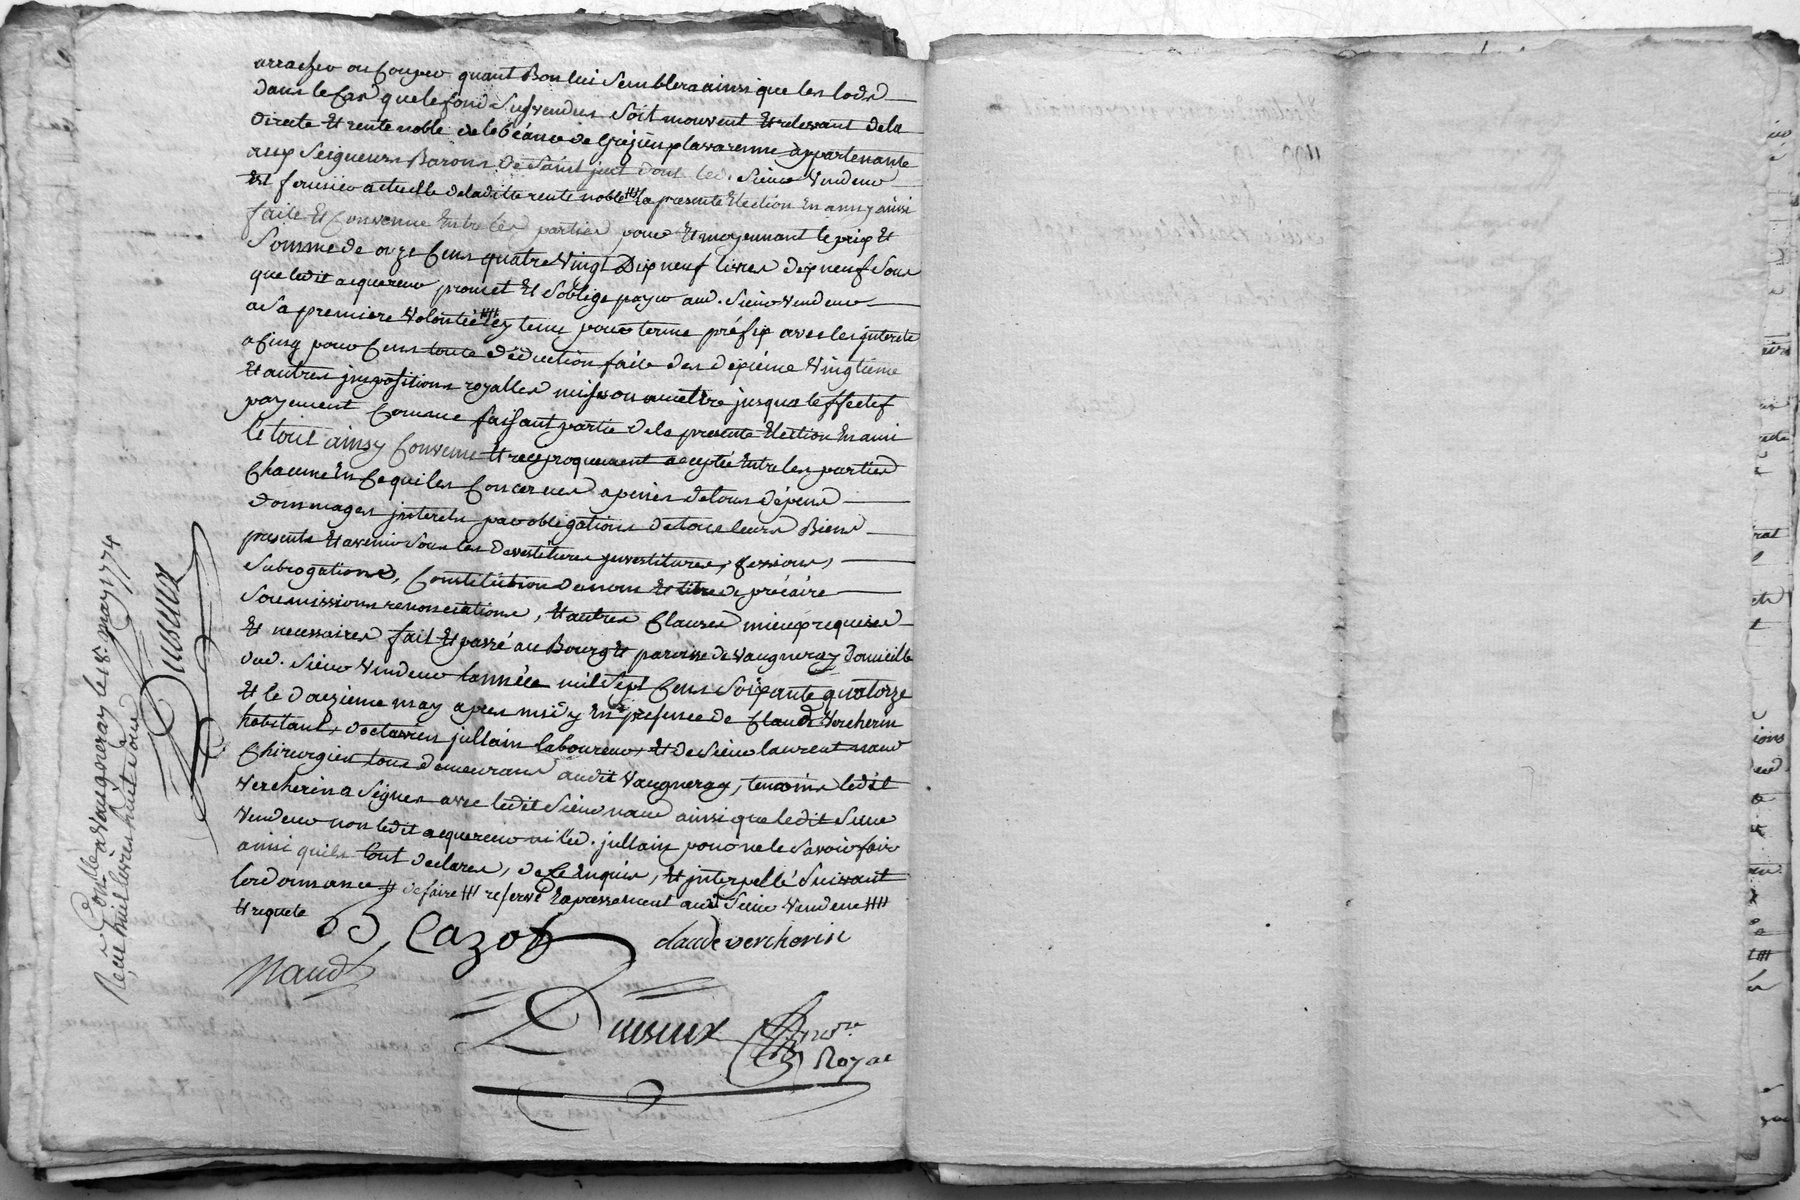 arracher ou Couper quant Bon lui Semblera ainsi que les lods
dans le Cas que le fond Susvendus Soit mouvent Et relevant de la
Directe Et rente noble de de Grézieu la varenne appartenante
aux Seigneurs Barons De Saint just dont led. Sieur Vendeur
Est fermier actuelle de laditte rente noble la presente Election En amy ainsi
faite Et Convenue Entre les parties pour Et moyennant le prix Et
Somme de onze Cens quatre Vingt Dix neuf livres dix neuf Sous
que ledit acquereur promet Et Soblige payer aud. Sieur Vendeur
a Sa premiere Volonté tenu pour terme préfix avec les jnterets
a Cinq pour Cens toute déduction faite des dixième Vingtieme
Et autres jmpositions royalles mises ou a mettre jusqua leffectif
payement Comme faisant partie de la presente Election En ami
le tout ainsy Convenu Et reciproquement acceptée Entre les parties
Chacune En Ce qui les Concernes a peines de tous dépens
dommages jnterets par obligations de tous leurs Biens
presents Et avenir Sous les devestitures jnvestitures, Cessions,
Subrogations, Constitution de nom Et titre de précaire
Soumissions renonciations, Et autres Clauses mieux requises
Et necessaires fait Et passé au Bourg Et paroisse de Vaugneray Domicille
dud. Sieur Vendeur lannée mil Sept Cens Soixante quatorze
Et le douzieme may apres midy En presence de Claude Vercherin
habitant, doctavien jullain laboureur Et de Sieur laurent naud
Chirurgien tous demeurans audit Vaugneray, temoins ledit
Vercherin a Signer avec ledit Sieur naud ainsi que ledit Sieur
Vendeur non ledit acquereur ni led. jullain pour ne le Savoir faire
ainsi quils lont declarer, de Ce Enquis, Et jnterpellé Suivant
lordonnance # de faire #### reservé Expressement audt Sieur Vendeur ####
Et requete
B, Cazot
claude vercherin
Naud
Dusieux
nore
Royal
Controllé a Vaugneray le 18. may 1774
Recu huit livres huit sous
Dusieux